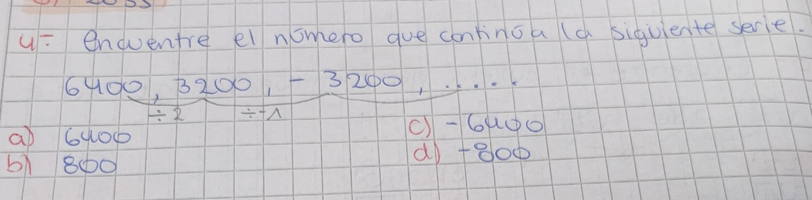 4- encuentre el número que continúa la siguiente serie.
6400, 3200, - 3200, .....
÷2 ÷-1
a) 6400 c) -6400
b) 800 d) -800